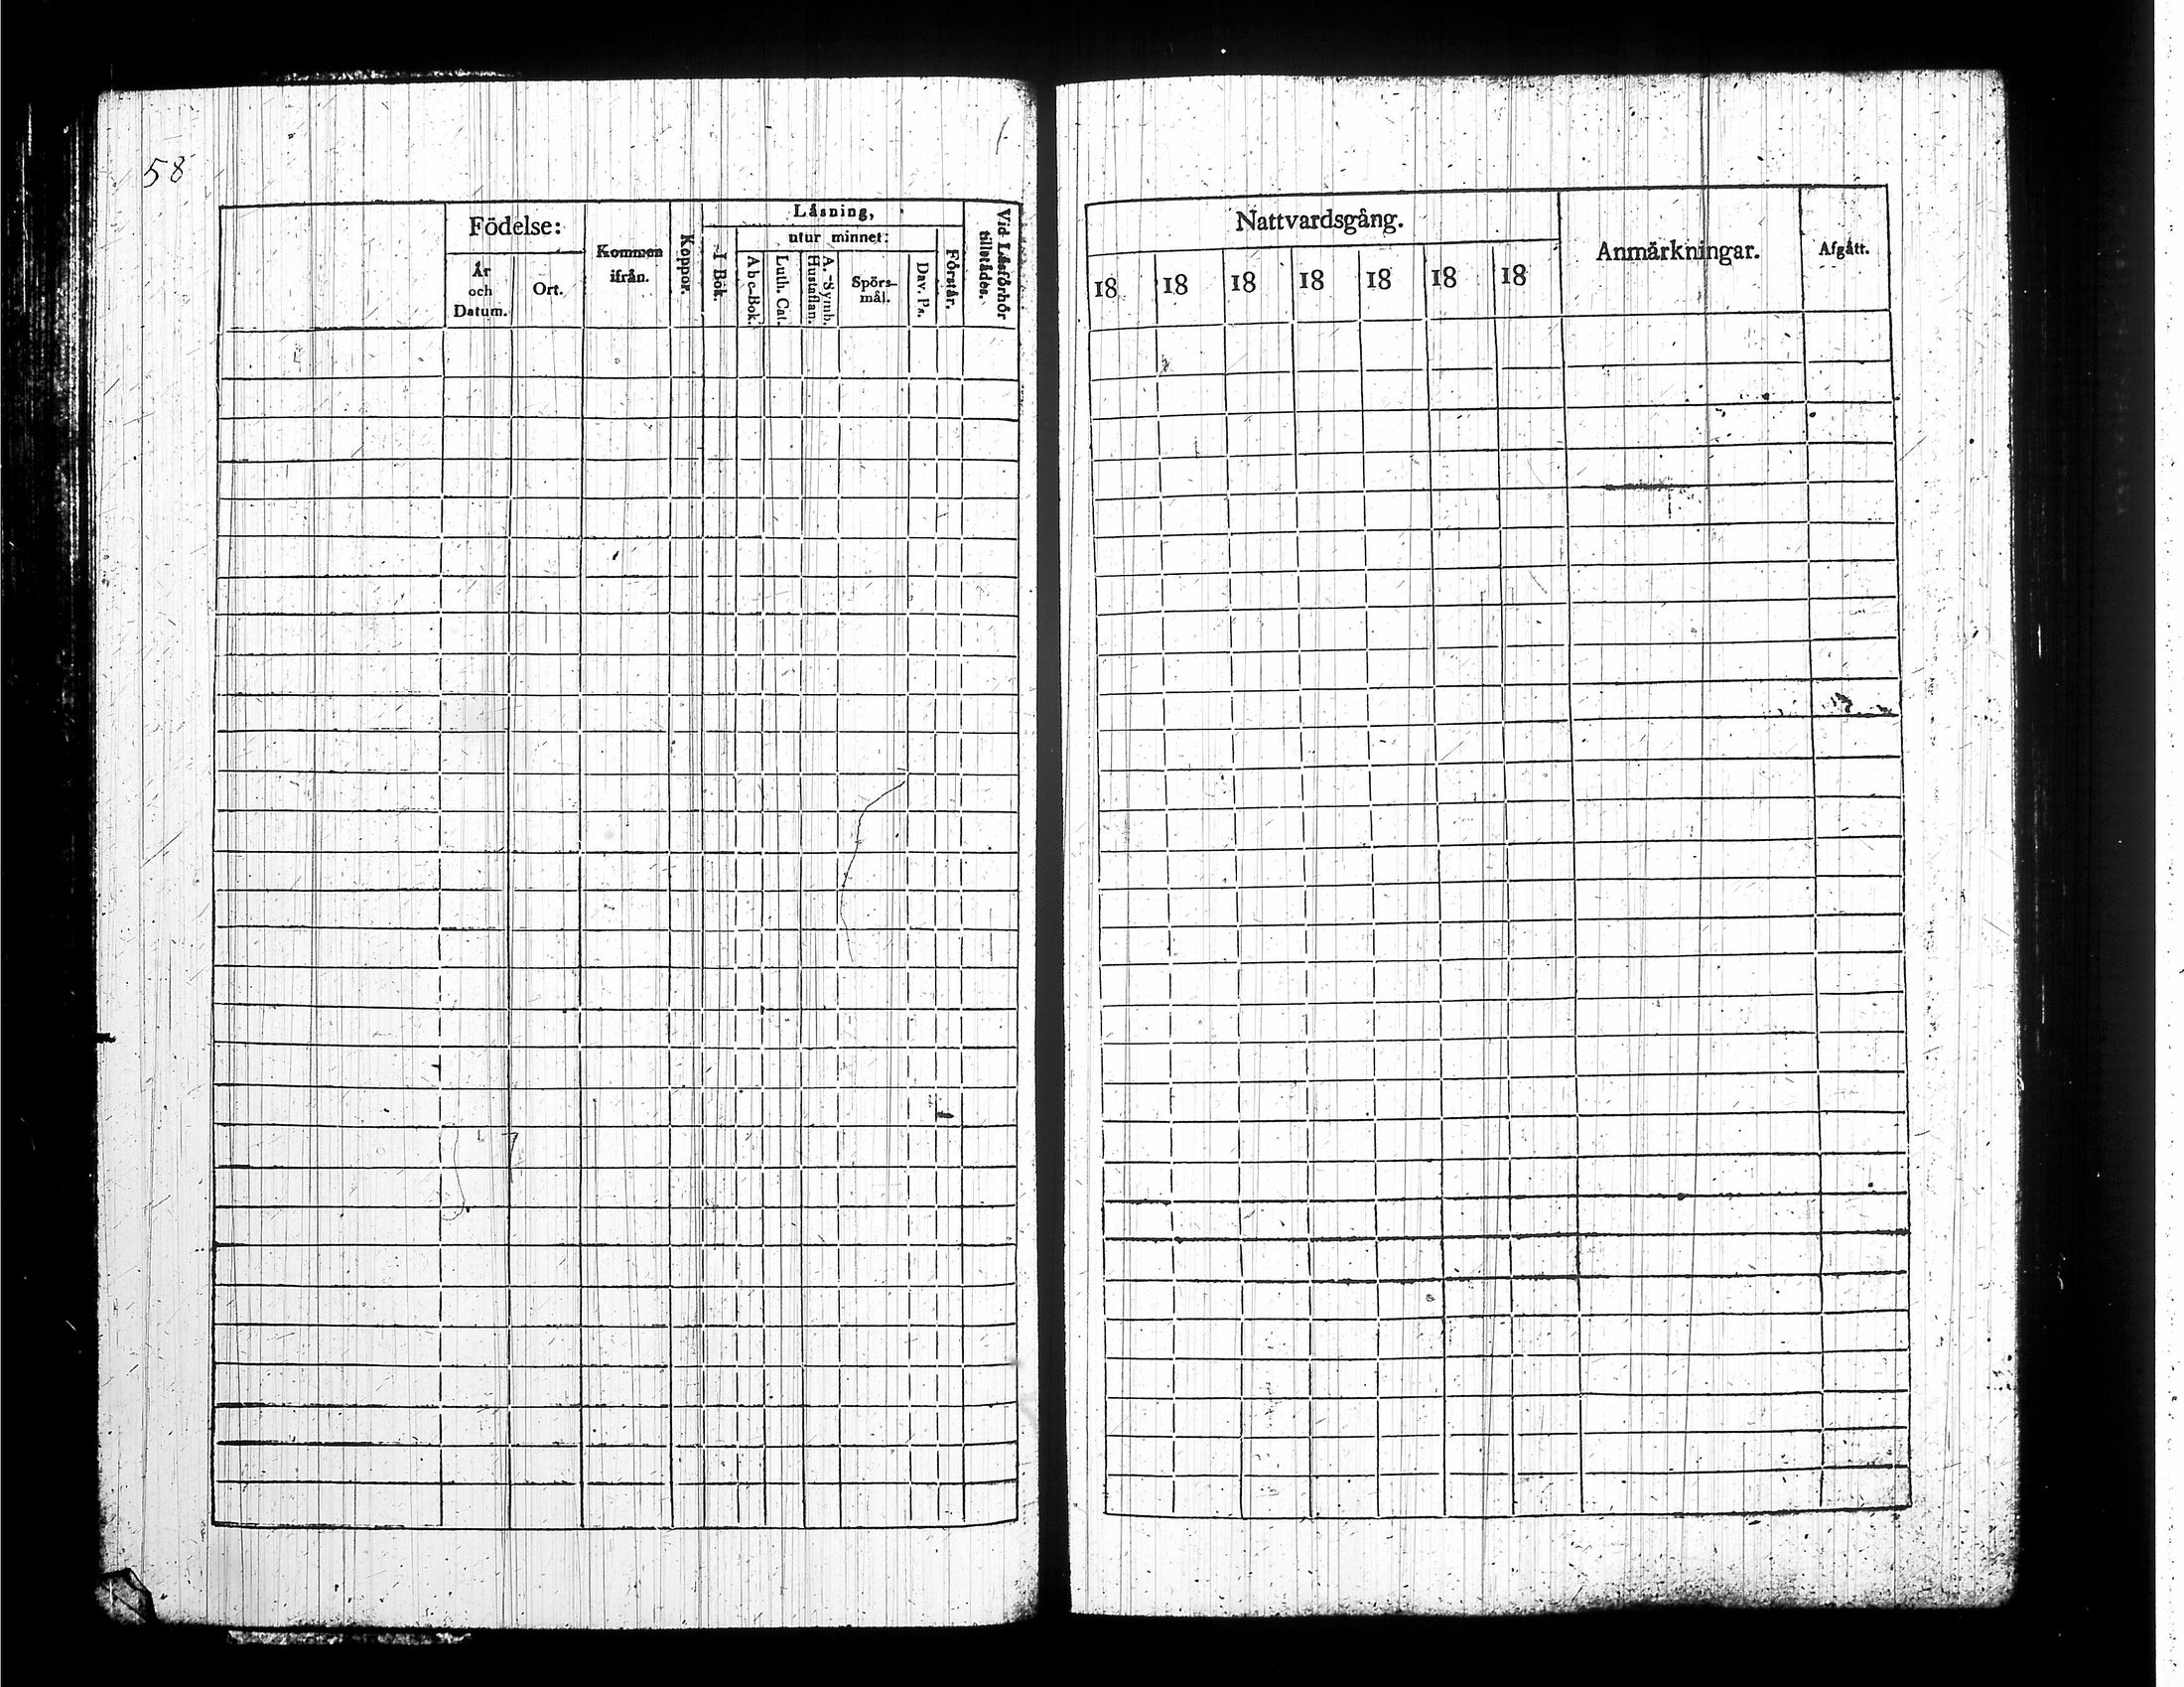 58
Födelse:
År och Datum.
Ort.
Kommen ifrån.
Koppor.
Läsning,
I Bok.
utur minnet:
Abc-Bok.
Luth. Cat.
A.-Symb. Hustaflan.
Spörsmål.
Dav. Ps.
Förstår.
Vid Läsförhör tillstädes.
Nattvardsgång.
18 18 18 18 18 18 18
Anmärkningar.
Afgått.